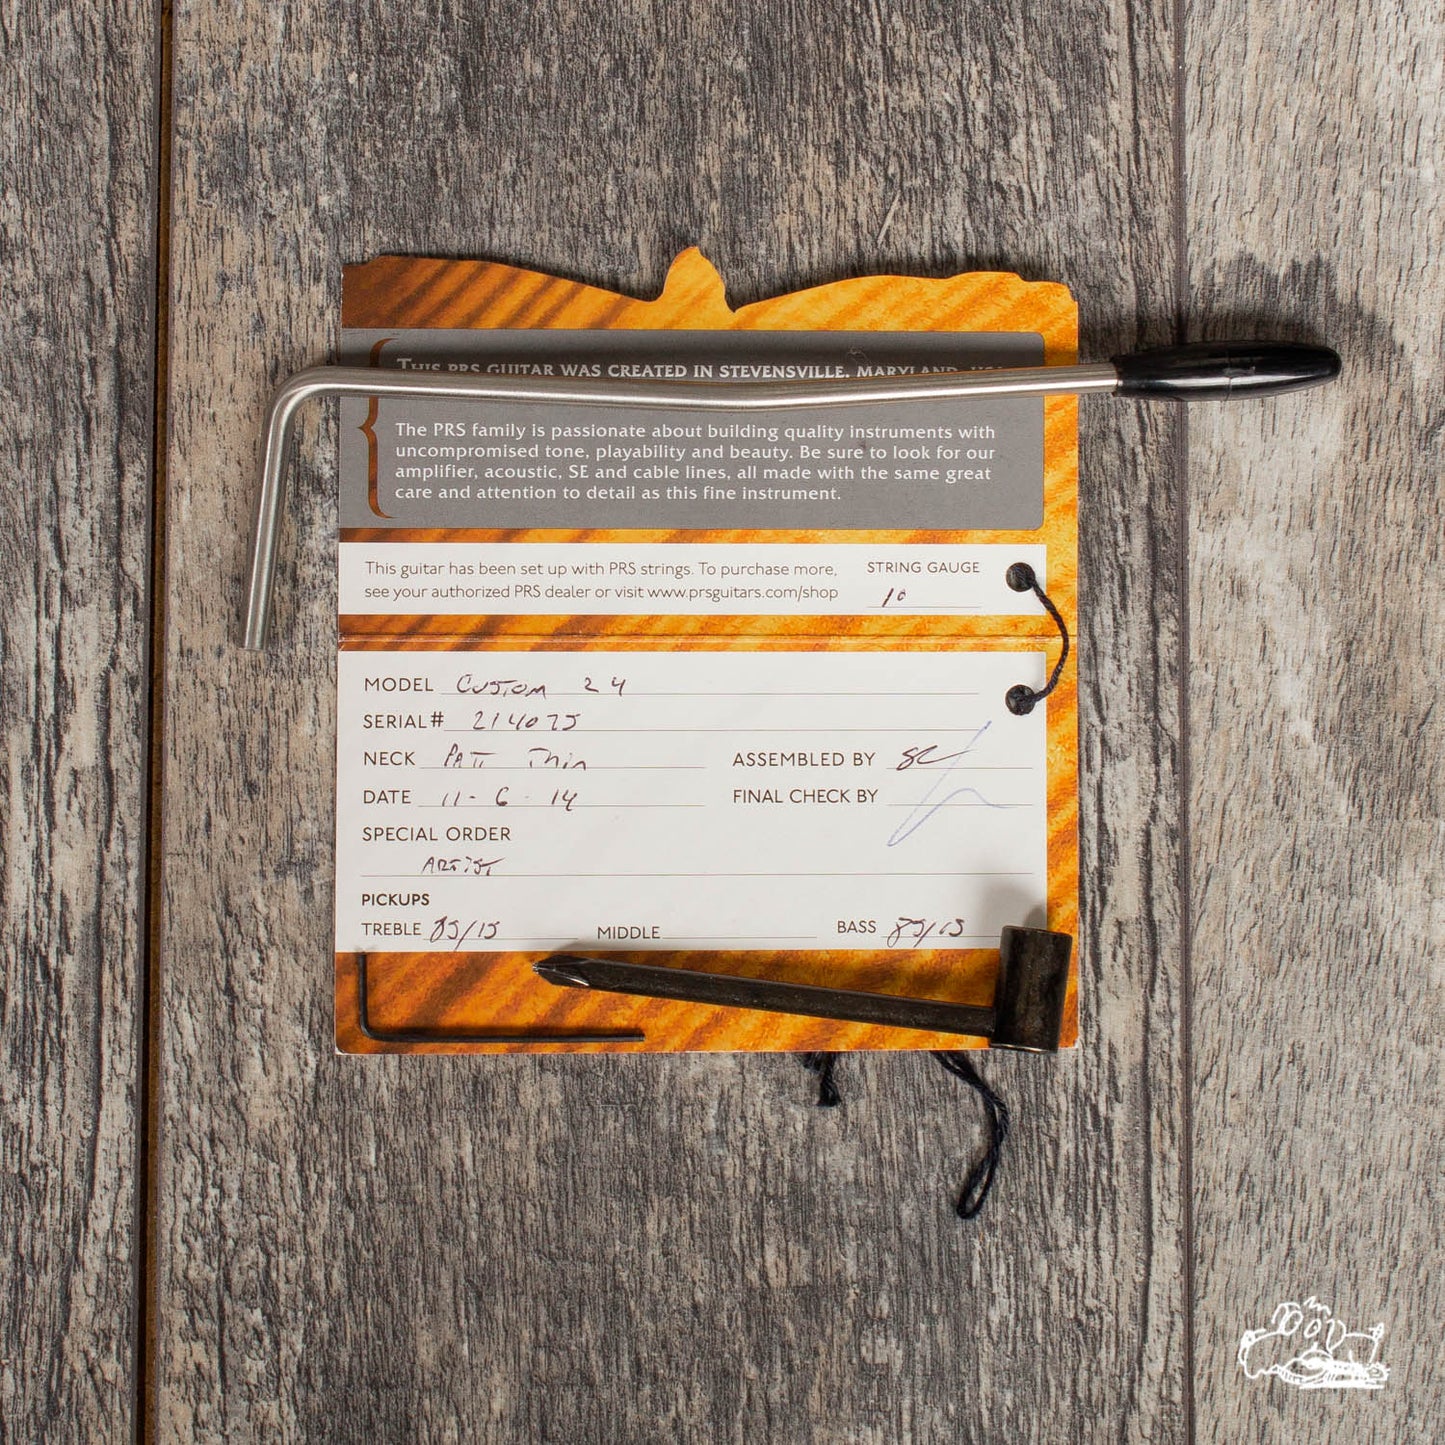 THIS PRS GUITAR WAS CREATED IN STEVENSVILLE, MARYLAND, USA
The PRS family is passionate about building quality instruments with
uncompromised tone, playability and beauty. Be sure to look for our
amplifier, acoustic, SE and cable lines, all made with the same great
care and attention to detail as this fine instrument.
This guitar has been set up with PRS strings. To purchase more,
see your authorized PRS dealer or visit www.prsguitars.com/shop
STRING GAUGE
10
MODEL Custom 24
SERIAL# 214075
NECK PATT Thin
DATE 11-6-14
ASSEMBLED BY
FINAL CHECK BY
SPECIAL ORDER
ARTIST
PICKUPS
TREBLE 85/15 MIDDLE BASS 85/15